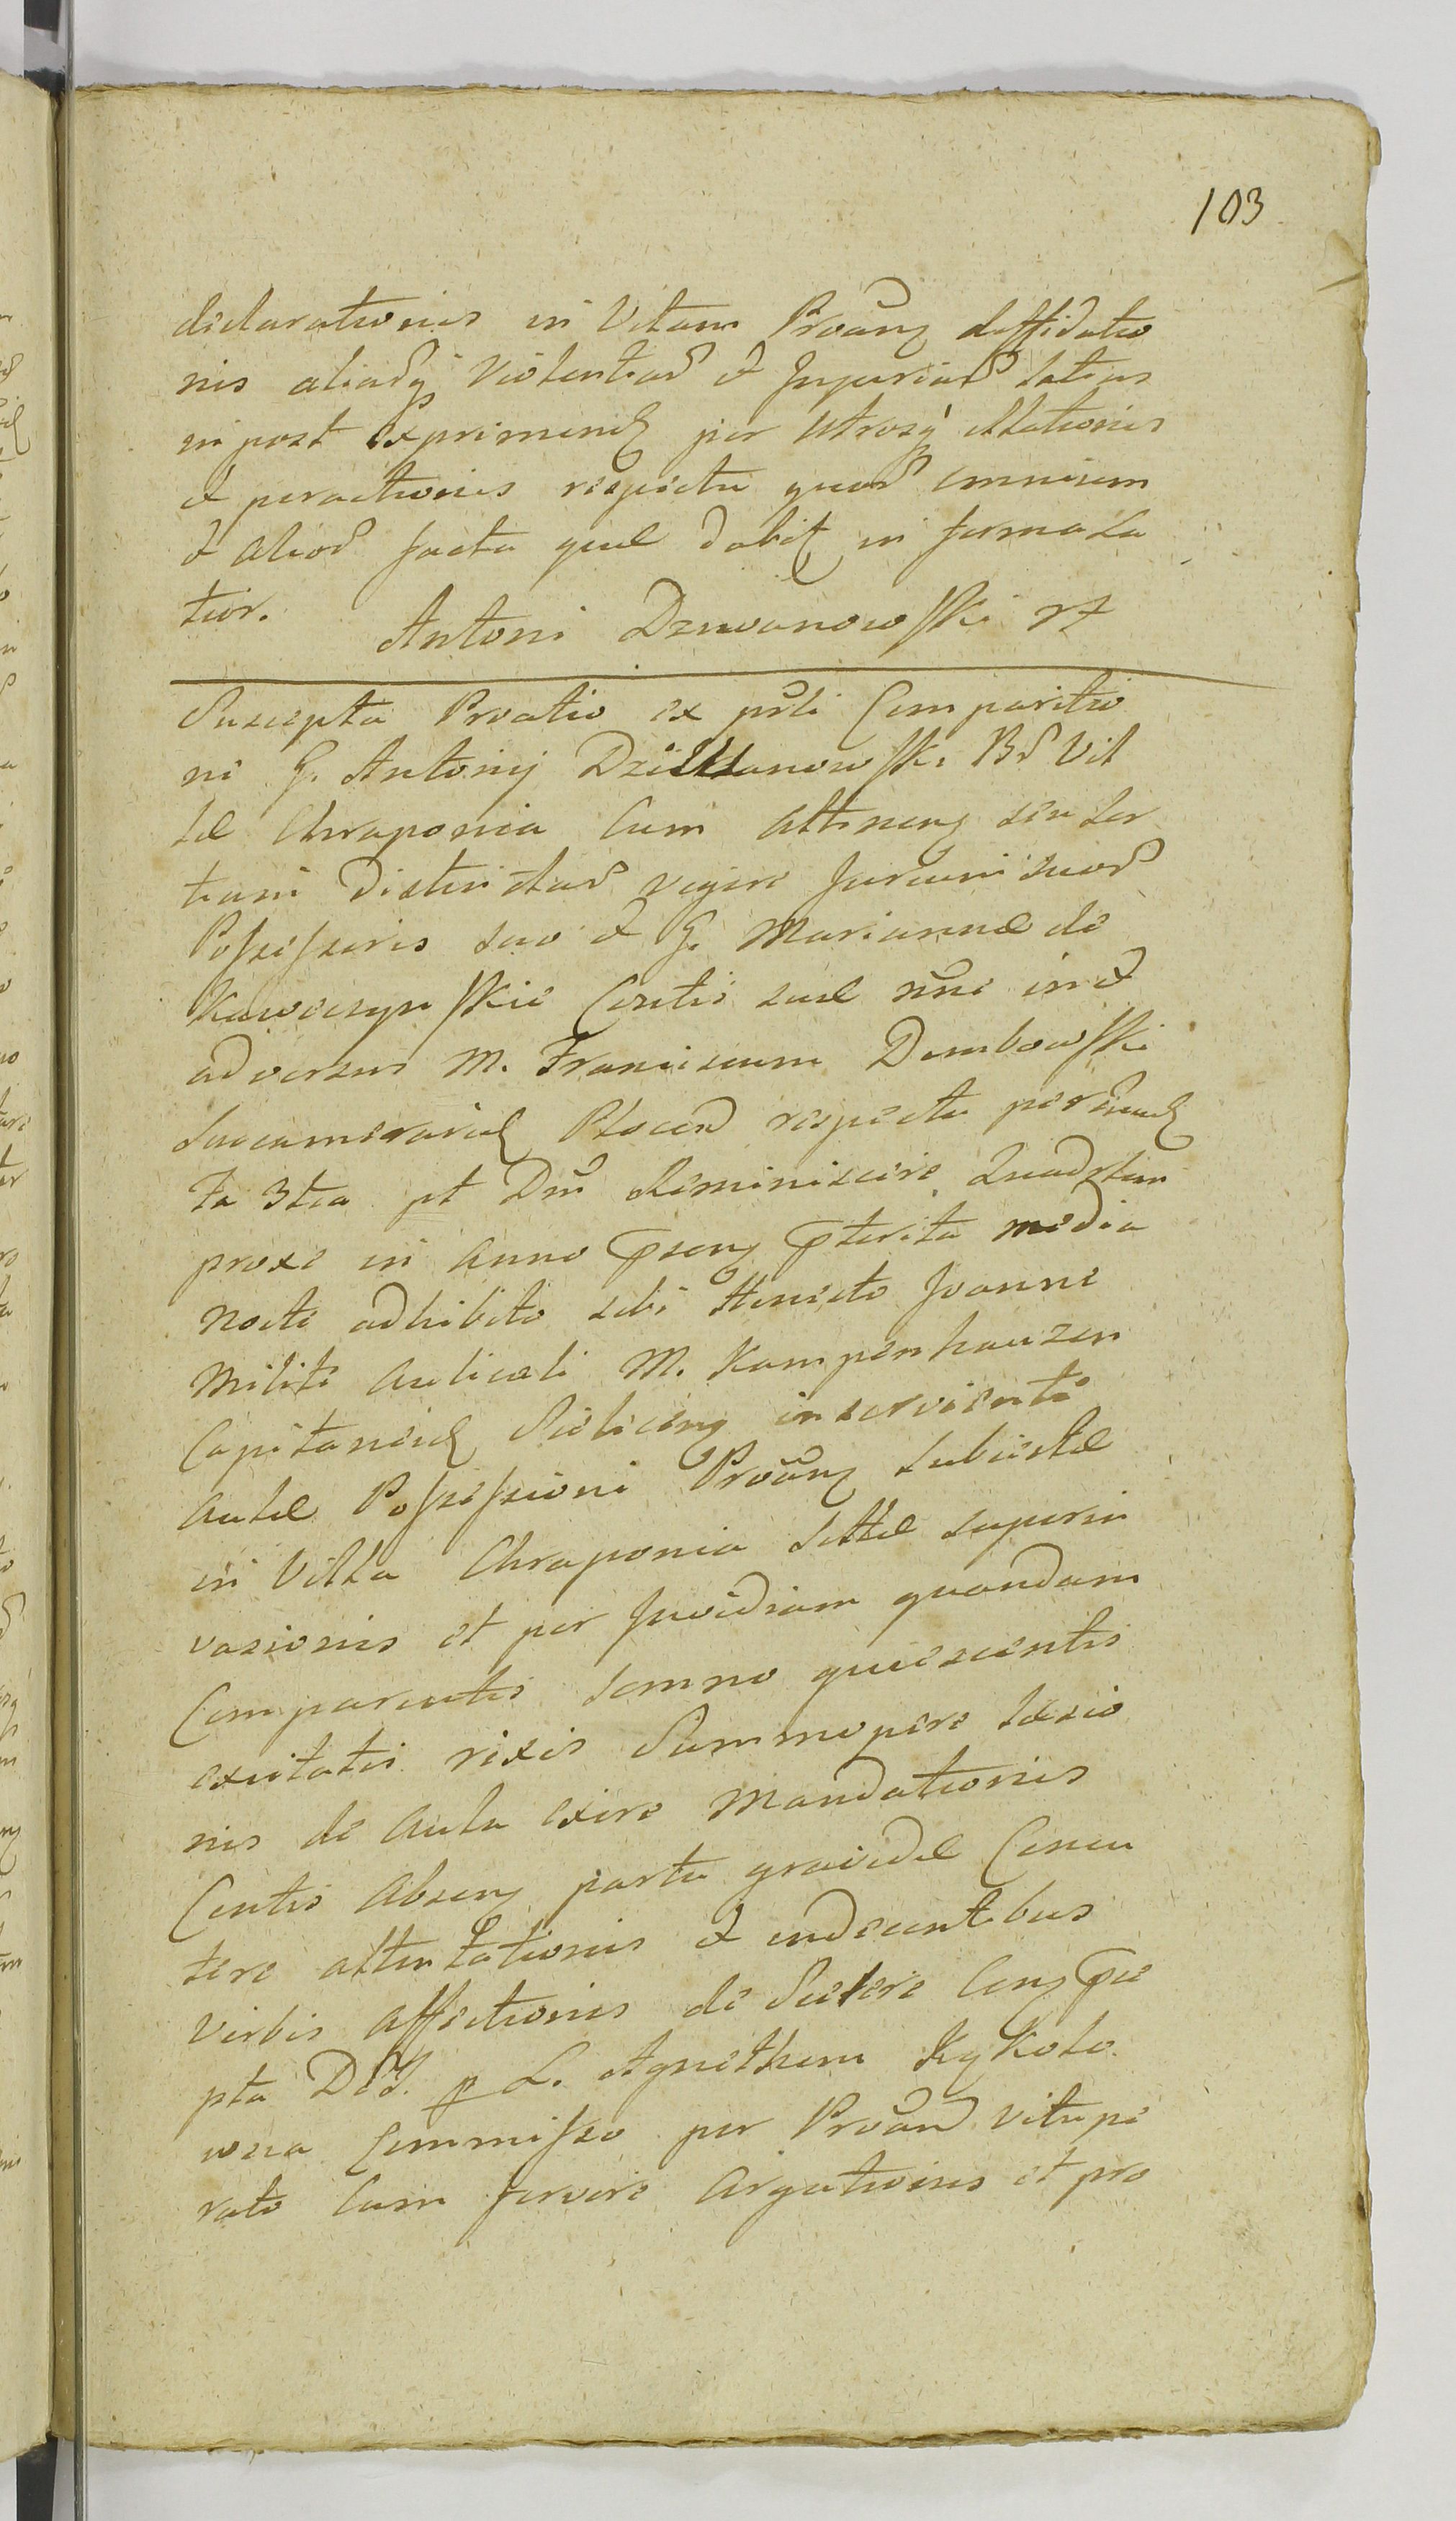 103
declarationis in Vitam Protanz diffidatio
nis aliarq Violentiar et Injuriar latius
in post exprimend per utrosq illationis
et peractionis respectu quor omnium
et alior facta quæ dabit in forma la
tior. Antoni Dziwanowski
Suscepta Protatio ex prsti Comparitio
ne G. Antonij Dziwanowski Br Vil
læ Chraponia cum attinenz seu Sor
tium districtus vigore Jurium suor
Possessoris suo et G. Mariannæ de
Kawieczynskie Contis suæ nne in et
adversus M. Franciscum Dembowski
Succamerarid Plocen respectu per
fa 3tia pt Dm Reminiscere Quadrlem
proxe in anno psenz pterita media
nocte adhibito sibi Honesto Joanne
Milite Aulicali M. Kampenhauzen
Capitaneid inservienti
Aulæ Possessioni Protanz subiectæ
in Villa Chraponia sittæ superin
vasionis et per Invidiam quandam
Comparentis somno quiescentis
excitatis rixis Summopere læsio
nis de Aula exire Mandationis
Contis Absenz partu gravidæ Concu
tere attentationis et indecentibus
Verbis affectionis de Scelere Conspe
pta p L. Agnetham Kykoło
wna Commisso per Protan vitupe
rato cum fervore Argutionis et pro